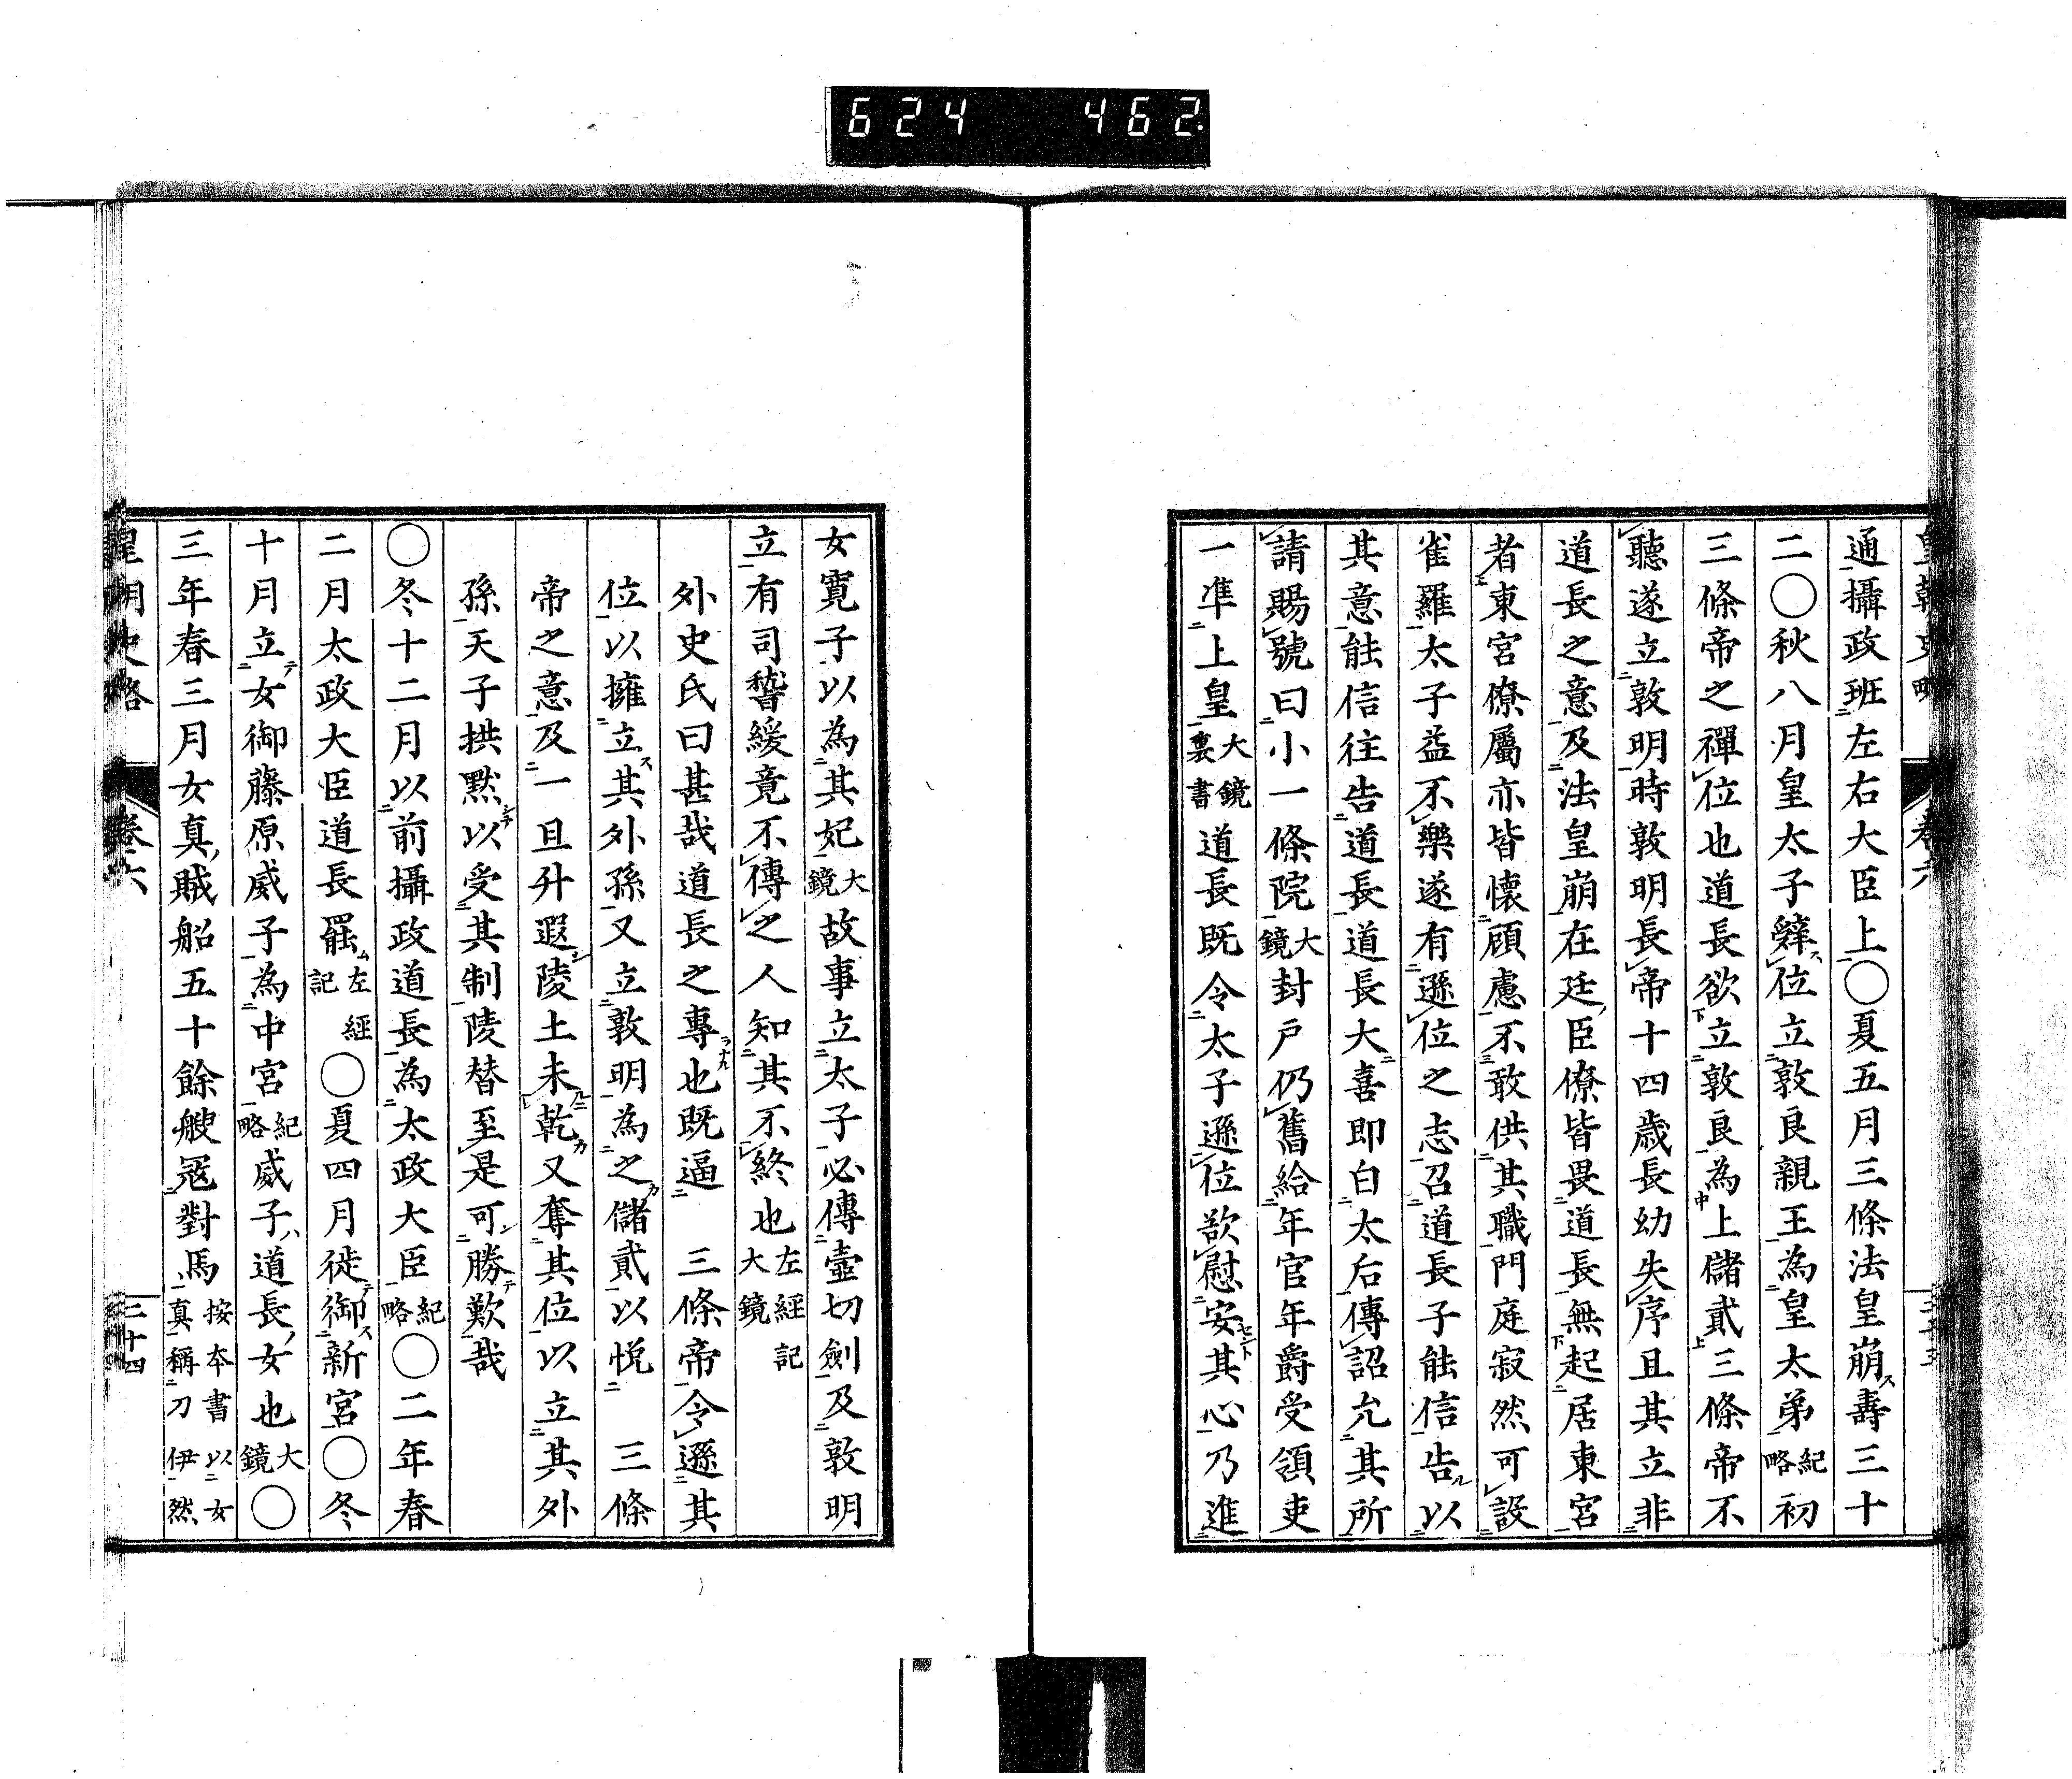 624 462
皇朝史略 卷六
通攝政班左右大臣上〇夏五月三條法皇崩壽三十
二〇秋八月皇太子辤位立敦良親王為皇太弟紀略初
三條帝之禪位也道長欲立敦良為上儲貳三條帝不
聽遂立敦明時敦明長帝十四歲長幼失序且其立非
道長之意及法皇崩在廷臣僚皆畏道長無起居東宮
者東宮僚屬亦皆懷顧慮不敢供其職門庭寂然可設
雀羅太子益不樂遂有遜位之志召道長子能信告以
其意能信往告道長道長大喜即白太后傳詔允其所
請賜號曰小一條院大鏡封戶仍舊給年官年爵受領吏
一準上皇大鏡裏書道長既令太子遜位欲慰安其心乃進
女寬子以為其妃大鏡故事立太子必傳壺切劍及敦明
立有司誊緩竟不傳之人知其不終也左經記大鏡
外史氏曰甚哉道長之專也既逼 三條帝令遜其
位以擁立其外孫又立敦明為之儲貳以悅 三條
帝之意及一旦升遐陵土未乾又奪其位以立其外
孫天子拱默以受其制陵替至是可勝歎哉
〇冬十二月以前攝政道長為太政大臣紀略〇二年春
二月太政大臣道長罷左經記〇夏四月徙御新宮〇冬
十月立女御藤原威子為中宮紀略威子道長女也大鏡〇
三年春三月女真賊船五十餘艘寇對馬按本書以女真稱刀伊然
皇朝史略 卷六 二十四